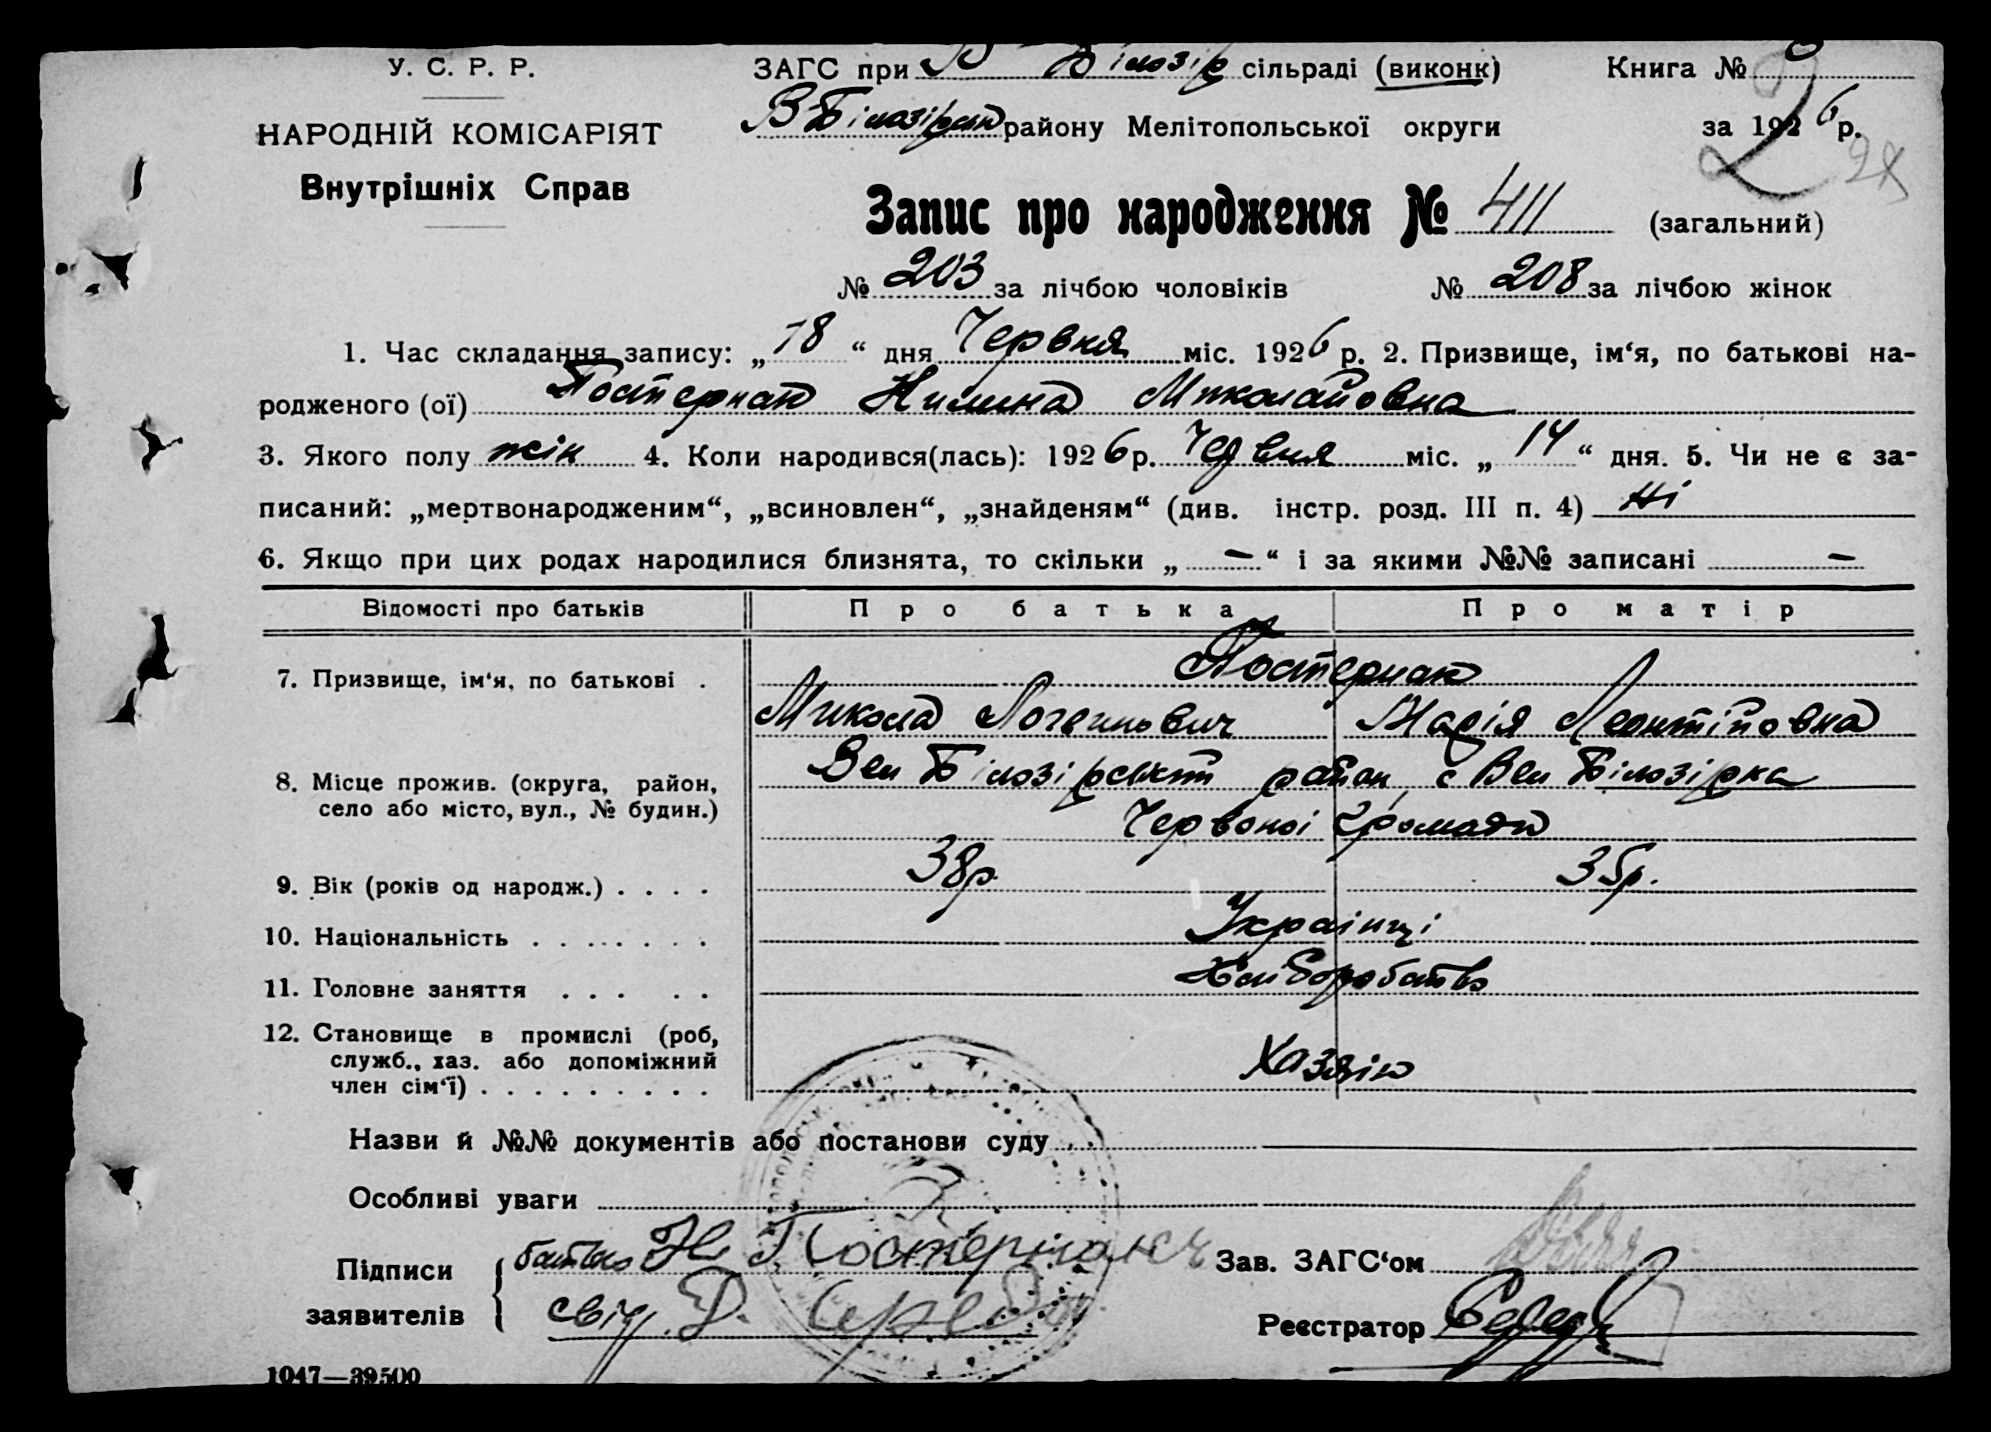 У. С. Р. Р.
НАРОДНІЙ КОМІСАРІЯТ
Внутрішніх Справ
ЗАГС при В Білозір сільраді (виконк) Книга №
В Білозірськ району Мелітопольської округи за 1926 р.
2
Запис про народження № 411 (загальний)
№ 203 за лічбою чоловіків № 208 за лічбою жінок
1. Час складання запису: „18“ дня Червня міс. 1926 р. 2. Призвище, ім‘я, по батькові на-
родженого (ої) Постернак Миколайовна
3. Якого полу жін 4. Коли народився(лась): 1926 р. Червня міс. „14“ дня. 5. Чи не є за-
писаний: „мертвонародженим“, „всиновлен“, „знайденям“ (див. інстр. розд. III п. 4) Ні
6. Якщо при цих родах народилися близнята, то скільки „ — “ і за якими №№ записані —
Відомості про батьків Про батька Про матір
7. Призвище, ім‘я, по батькові . Постернак
Микола Логвинович Марія Леонтіповна
8. Місце прожив. (округа, район, Вел Білозірський район, с Вел Білозірка
село або місто, вул., № будин.) Червоної громади
9. Вік (років од народж.) . . . . 38р. 35р.
10. Національність . . . . . . . . Українці
11. Головне заняття . . . . . Хліборобство
12. Становище в промислі (роб,
служб., хаз. або допоміжний Хазяїн
член сім‘ї) . . . . . . . . .
Назви й №№ документів або постанови суду
Особливі уваги
Підписи батько Н Постернак Зав. ЗАГС‘ом
заявителів свід. Реєстратор
1047—39500